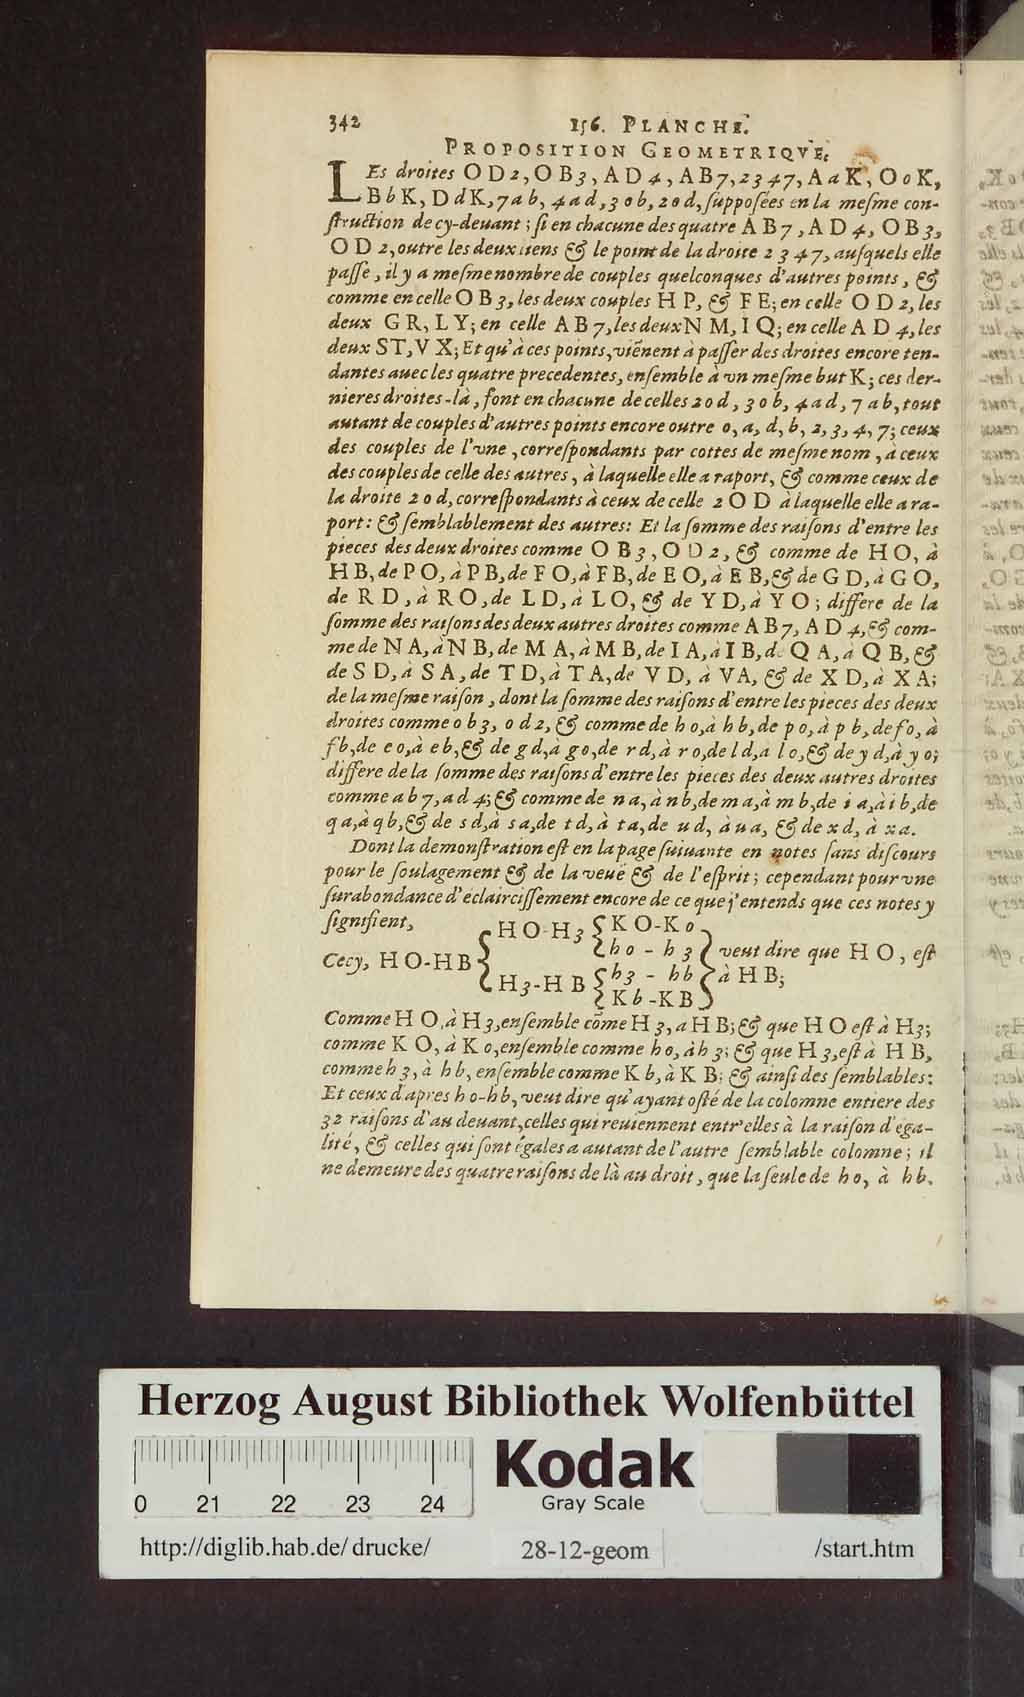 342 156. PLANCHE.
PROPOSITION GEOMETRIQVE.
LEs droites OD2, OB3, AD4, AB7, 2347, AaK, OoK,
BbK, DdK, 7ab, 4ad, 3ob, 2od, ſuppoſées en la meſme con-
ſtruction de cy-deuant; ſi en chacune des quatre AB7, AD4, OB3,
OD2, outre les deux siens & le point de la droite 2347, auſquels elle
paſſe, il y a meſme nombre de couples quelconques d'autres points, &
comme en celle OB3, les deux couples HP, & FE; en celle OD2, les
deux GR, LY; en celle AB7, les deux NM, IQ; en celle AD4, les
deux ST, VX; Et qu'à ces points, viẽnent à paſſer des droites encore ten-
dantes auec les quatre precedentes, enſemble à vn meſme but K; ces der-
nieres droites-là, font en chacune de celles 2od, 3ob, 4ad, 7ab, tout
autant de couples d'autres points encore outre o, a, d, b, 2, 3, 4, 7; ceux
des couples de l'vne, correſpondants par cottes de meſme nom, à ceux
des couples de celle des autres, à laquelle elle a raport, & comme ceux de
la droite 2od, correſpondants à ceux de celle 2OD à laquelle elle a ra-
port: & ſemblablement des autres: Et la ſomme des raiſons d'entre les
pieces des deux droites comme OB3, OD2, & comme de HO, à
HB, de PO, à PB, de FO, à FB, de EO, à EB, & de GD, à GO,
de RD, à RO, de LD, à LO, & de YD, à YO; differe de la
ſomme des raiſons des deux autres droites comme AB7, AD4, & com-
me de NA, à NB, de MA, à MB, de IA, à IB, de QA, à QB, &
de SD, à SA, de TD, à TA, de VD, à VA, & de XD, à XA;
de la meſme raiſon, dont la ſomme des raiſons d'entre les pieces des deux
droites comme ob3, od2, & comme de ho, à hb, de po, à pb, de fo, à
fb, de eo, à eb, & de gd, à go, de rd, à ro, de ld, a lo, & de yd, à yo;
differe de la ſomme des raiſons d'entre les pieces des deux autres droites
comme ab7, ad4; & comme de na, à nb, de ma, à mb, de ia, à ib, de
qa, à qb, & de sd, à sa, de td, à ta, de ud, à ua, & de xd, à xa.
Dont la demonſtration eſt en la page ſuiuante en notes ſans diſcours
pour le ſoulagement & de la veuë & de l'eſprit; cependant pour vne
ſurabondance d'éclairciſſement encore de ce que j'entends que ces notes y
ſignifient,
HO-H3 { KO-Ko
ho - h3
Cecy, HO-HB { } veut dire que HO, eſt
à HB;
H3-HB { h3 - hb
Kb-KB
Comme HO, à H3, enſemble cõme H3, a HB; & que HO eſt à H3;
comme KO, à Ko, enſemble comme ho, à h3; & que H3, eſt à HB,
comme h3, à hb, enſemble comme Kb, à KB; & ainſi des ſemblables:
Et ceux d'apres ho-hb, veut dire qu'ayant oſté de la colomne entiere des
32 raiſons d'au deuant, celles qui reuiennent entr'elles à la raiſon d'éga-
lité, & celles qui ſont égales a autant de l'autre ſemblable colomne; il
ne demeure des quatre raiſons de là au droit, que la ſeule de ho, à hb.
Herzog August Bibliothek Wolfenbüttel
0 21 22 23 24
Kodak
Gray Scale
http://diglib.hab.de/drucke/ 28-12-geom /start.htm